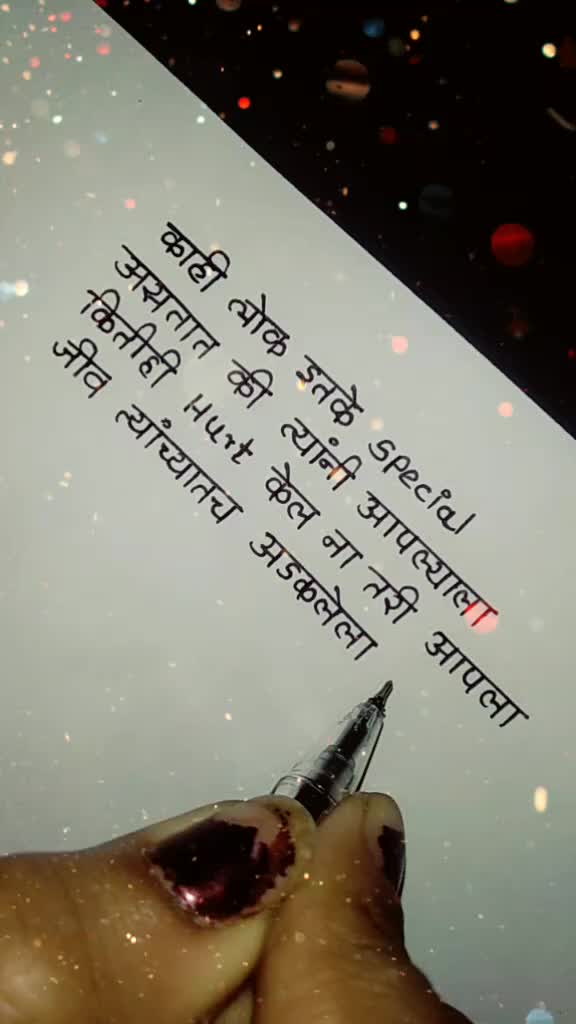 काही लोक इतके special
असतात की त्यांनी आपल्याला
कितीही Hurt केल ना तरी आपला
जीव त्यांच्यातच अडकलेला